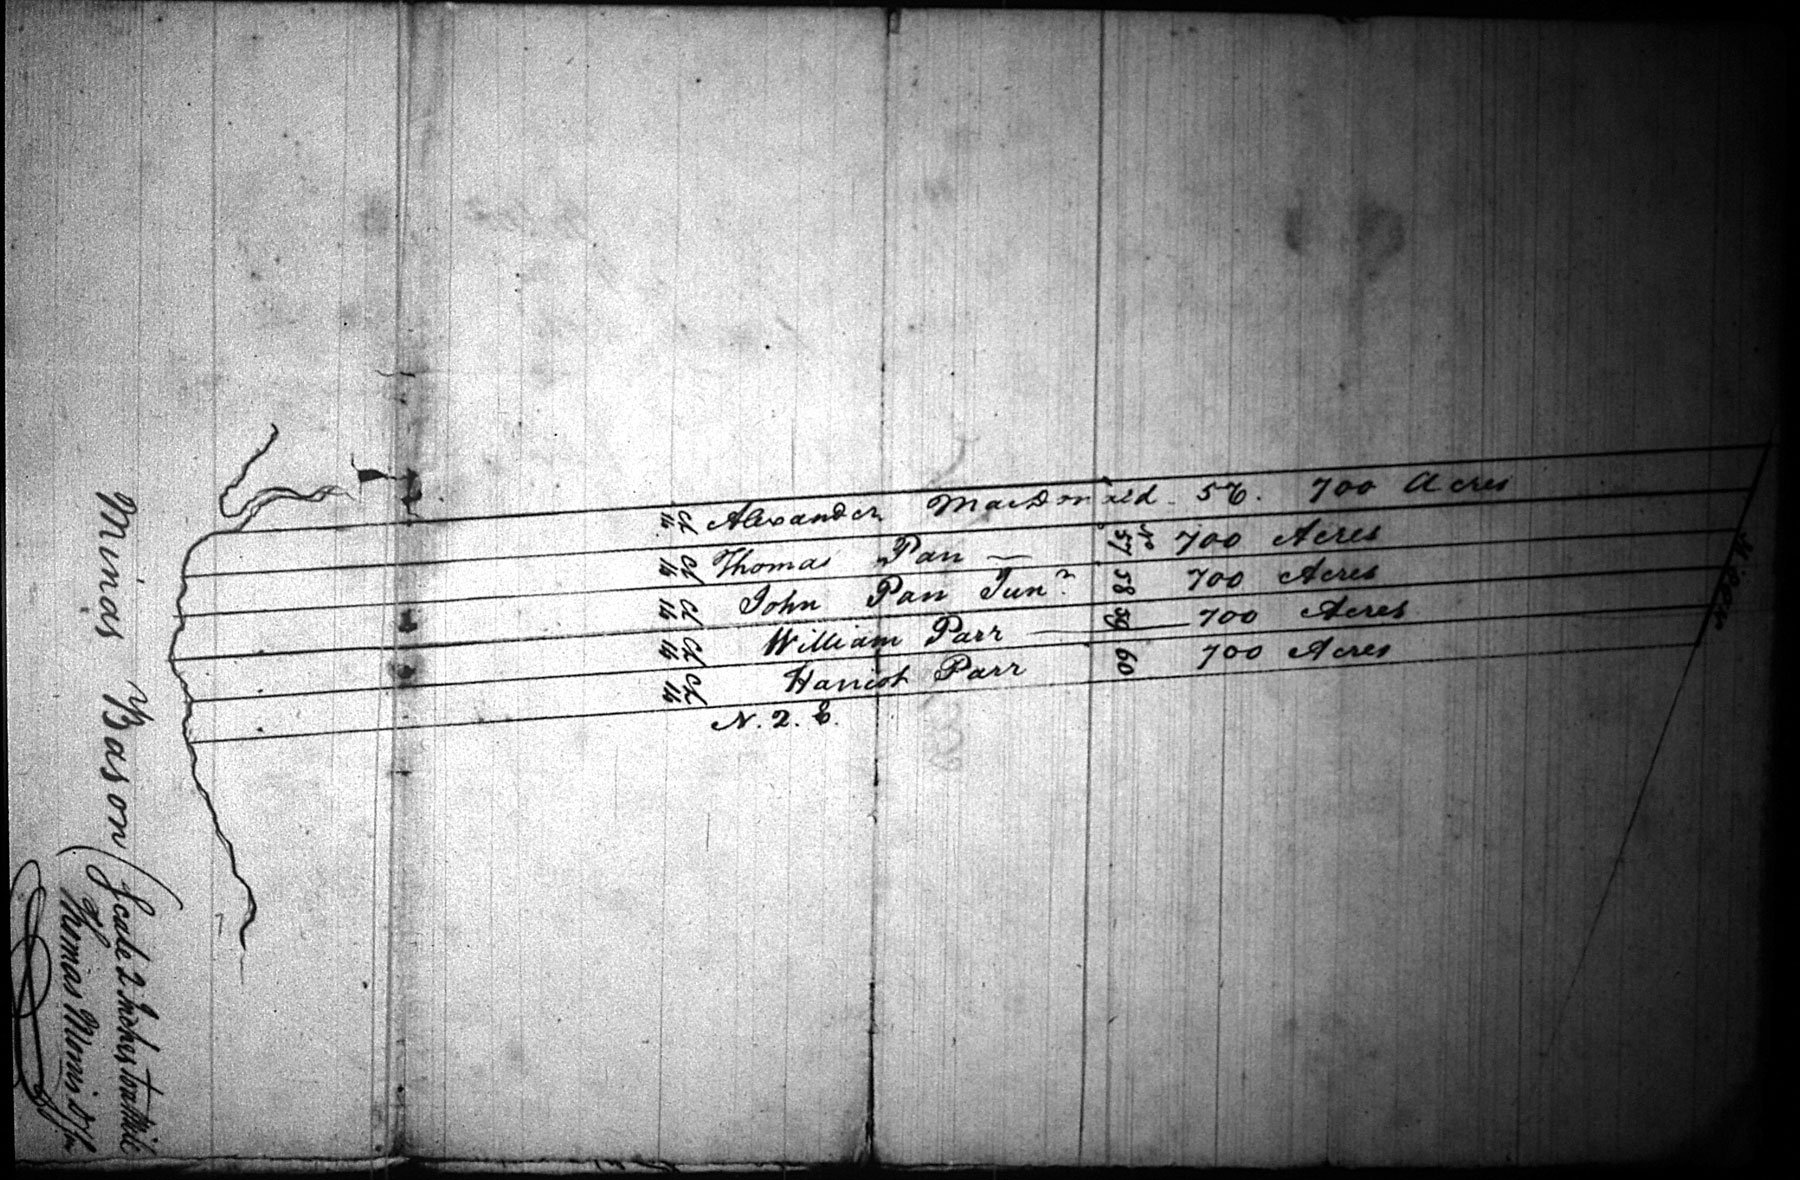 Alexander MacDonald. 56. 700 Acres
Thomas Parr — No 57 700 Acres
John Parr Junr 58 700 Acres
William Parr — 59 700 Acres
Parr 60 700 Acres
14 Ch
14 Ch
14 Ch
14 Ch
14 Ch
Minas Bason
Scale 2 Inches to a Mile
Thomas